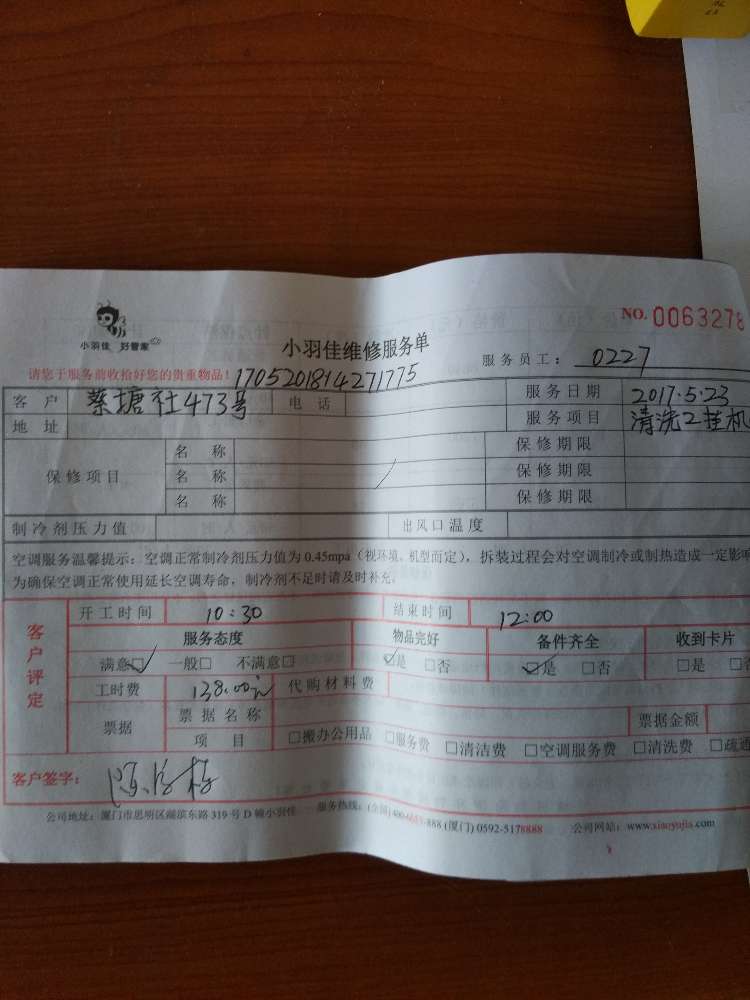 NO. 0063278
小羽佳 好管家
小羽佳维修服务单
服务员工: 0227
请您于服务前收拾好您的贵重物品! 1705201814271775
客户 蔡塘社473号 电话 服务日期 2017.5.23
地址 服务项目 清洗2挂机
保修项目 名称 保修期限
名称 保修期限
名称 保修期限
制冷剂压力值 出风口温度
空调服务温馨提示:空调正常制冷剂压力值为0.45mpa(视环境、机型而定),拆装过程会对空调制冷或制热造成一定影响
为确保空调正常使用延长空调寿命,制冷剂不足时请及时补充。
客户评定
开工时间 10:30 结束时间 12:00
服务态度 物品完好 备件齐全 收到卡片
满意☑ 一般□ 不满意□ ☑是 □否 ☑是 □否 □是 □
工时费 138.00元 代购材料费
票据 票据名称 票据金额
项目 □搬办公用品 □服务费 □清洁费 □空调服务费 □清洗费 □疏通
客户签字:
公司地址:厦门市思明区湖滨东路319号D幢小羽佳 服务热线:(全国)400 888 (厦门) 0592-5178888 公司网站:www.xiaoyujia.com